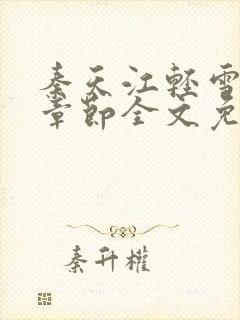 秦天江轻雪
章节全文免
秦升權